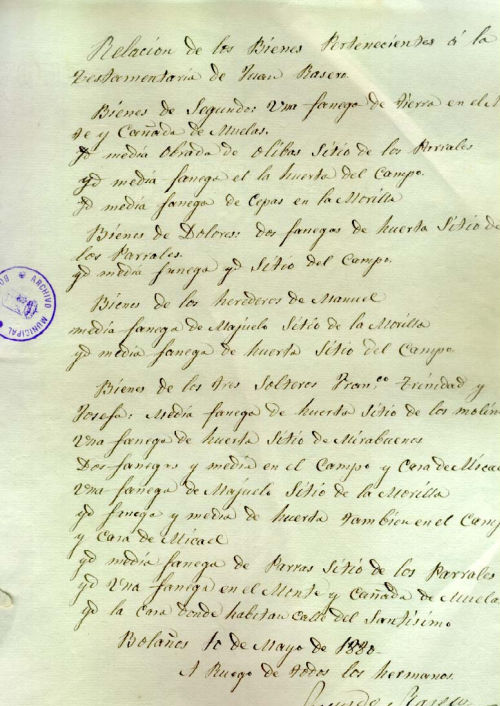 Relación de los Bienes Pertenecientes á la
Testamentaria de Juan Basero
Bienes de Segundo: Una fanega de tierra en el
te y Cañada de Muelas.
yd media obrada de olibas Sitio de los Parrales
yd media fanega el la huerta del Campo.
yd media fanega de Cepas en la Morilla
Bienes de Dolores: dos fanegas de huerta Sitio de
los Parrales.
yd media fanega yd Sitio del Campo.
Bienes de los herederos de Manuel
media fanega de Majuelo Sitio de la Morilla
yd media fanega de huerta Sitio del Campo
Bienes de los tres Solteros Fran.co Trinidad y
Josefa: Media fanega de huerta Sitio de los molin
Una fanega de huerta Sitio de Mirabuenos
Dos fanegas y media en el Campo y Casa de Micae
Una fanega de Majuelo Sitio de la Morilla
yd fanega y media de huerta tambien en el Camp
y Casa de Micael
yd media fanega de Parras Sitio de los Parrales
yd Una fanega en el Monte y Cañada de Muela
yd la Casa donde habitan Calle del Santísimo
Bolaños 10 de Mayo de 1880
A Ruego de todos los hermanos.
ARCHIVO MUNICIPAL